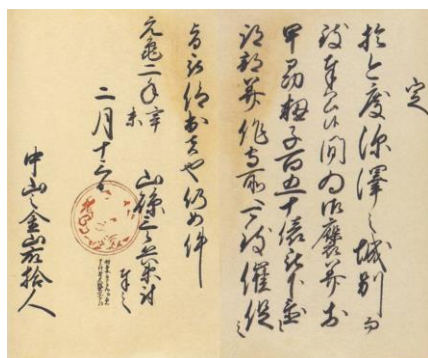 定
於今度深澤之城別而
致奉公候間為御褒美於
甲州籾子百五十俵被下置
可致催促
旨被仰出者也仍如件
元亀二年辛未
二月十三日
山縣三郎兵衛尉
奉之
中山之金山衆拾人